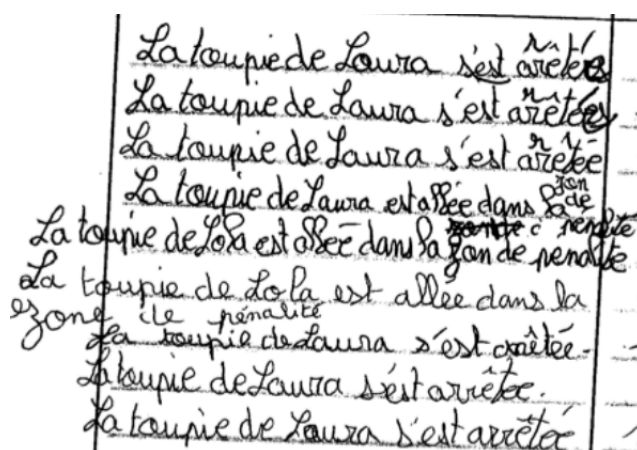 La toupie de Laura s'est arêtée
La toupie de Laura s'est arêtée
La toupie de Laura s'est arêtée
La toupie de Laura est allée dans la zon de
La toupie de Lola est allée dans la zon de penalite
La toupie de Lola est allée dans la
zone de pénalité
La toupie de Laura s'est arrêtée.
La toupie de Laura s'est arrêtée.
La toupie de Laura s'est arrêtée